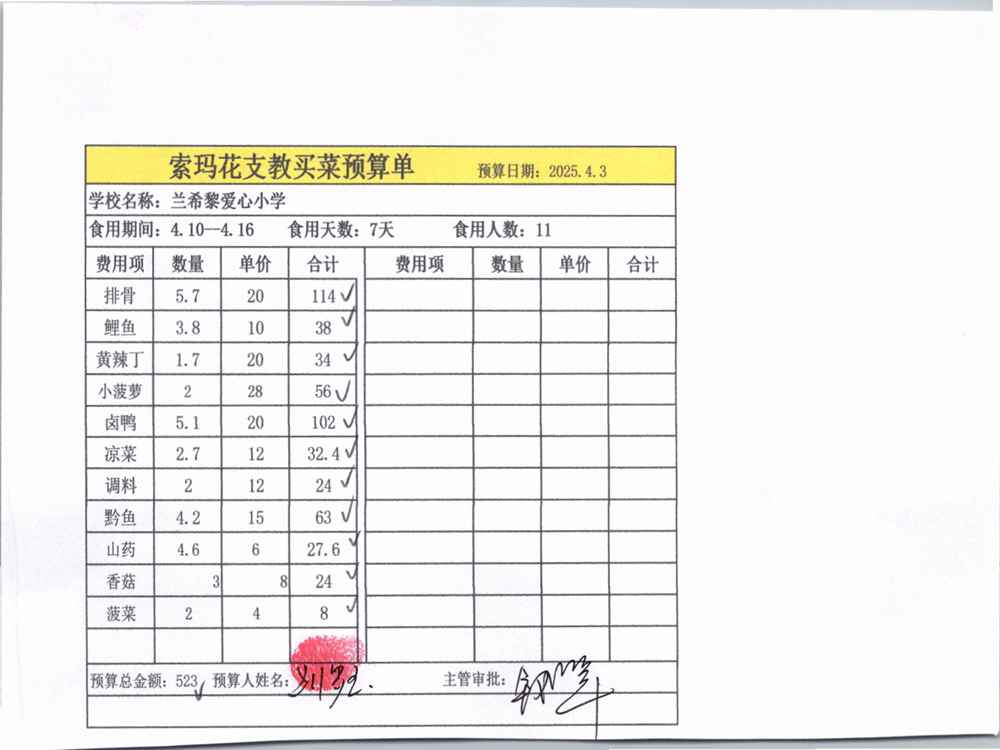 索玛花支教买菜预算单 预算日期：2025.4.3
学校名称：兰希黎爱心小学
食用期间：4.10—4.16 食用天数：7天 食用人数：11
费用项 数量 单价 合计 费用项 数量 单价 合计
排骨 5.7 20 114 ✓
鲤鱼 3.8 10 38 ✓
黄辣丁 1.7 20 34 ✓
小菠萝 2 28 56 ✓
卤鸭 5.1 20 102 ✓
凉菜 2.7 12 32.4 ✓
调料 2 12 24 ✓
黔鱼 4.2 15 63 ✓
山药 4.6 6 27.6 ✓
香菇 3 8 24 ✓
菠菜 2 4 8 ✓
预算总金额：523 ✓ 预算人姓名： 主管审批：